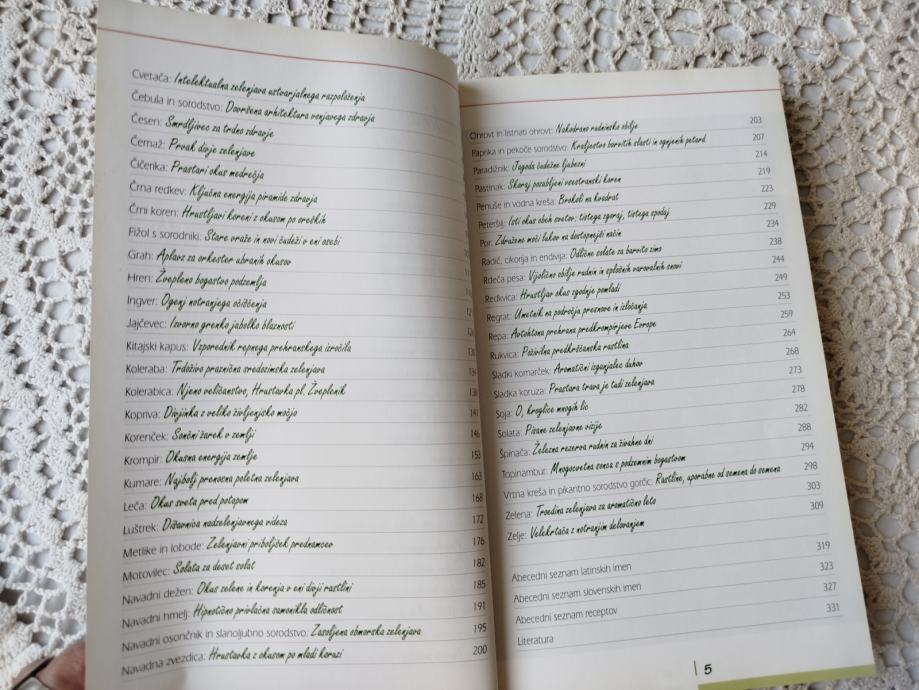 Cvetača: Intelektualna zelenjava ustvarjalnega razpoloženja
Čebula in sorodstvo: Dovršena arhitektura vonjavega zdravja
Česen: Smrdljivec za trdno zdravje
Čemaž: Prvak divje zelenjave
Čičerika: Prastari okus medrečja
Črna redkev: Ključna energija piramide zdravja
Črni koren: Hrustljavi koreni z okusom po oreških
Fižol s sorodniki: Stare vraže in novi čudeži v eni osebi
Grah: Aplavz za orkester ubranih okusov
Hren: Žvepleno bogastvo podzemlja
Ingver: Ogenj notranjega očiščenja
Jajčevec: Izvorno grenko jabolko blaznosti
Kitajski kapus: Vzporednik repnega prehranskega izročila
Koleraba: Trdoživo praznična sredozimska zelenjava 134
Kolerabica: Njeno veličanstvo, Hrustavka pl. Žveplenik
Kopriva: Divjinka z veliko življenjsko močjo 141
Korenček: Sončni žarek v zemlji 146
Krompir: Okusna energija zemlje 153
Kumare: Najbolj prenosna poletna zelenjava 163
Leča: Okus sveta pred potopom 168
Luštrek: Dišavnica nadzelenjavnega videza 172
Metlike in lobode: Zelenjavni priboljšek prednamcev 176
Motovilec: Solata za deset solat 182
Navadni dežen: Okus zelene in korenja v eni divji rastlini 185
Navadni hmelj: Hipnotično privlačna samonikla odličnost 191
Navadni osončnik in slanoljubno sorodstvo: Zasoljena obmorska zelenjava 195
Navadna zvezdica: Hrustavka z okusom po mladi koruzi 200
Ohrovt in listnati ohrovt: Nakodrano rudninsko obilje 203
Paprika in pekoče sorodstvo: Kraljestvo barvitih slasti in ognjenih petard 207
Paradižnik: Jagoda čudežne ljubezni 214
Pastinak: Skoraj pozabljeni vsestranski koren 219
Penuše in vodna kreša: Brokoli na kvadrat 223
Peteršilj: Isti okus obeh svetov; tistega zgoraj, tistega spodaj 229
Por: Združene moči lukov na dostopnejši način 234
Radič, cikorija in endivija: Odlične solate za barvito zimo 238
Rdeča pesa: Vijolično obilje rudnin in splošnih varovalnih snovi 244
Redkvica: Hrustljav okus zgodnje pomladi 249
Regrat: Umetnik na področju presnove in izločanja 253
Repa: Avtohtona prehrana predkrompirjeve Evrope 259
Rukvica: Poživilna predkrščanska rastlina 264
Sladki komarček: Aromatični izganjalec duhov 268
Sladka koruza: Prastara trava je tudi zelenjava 273
Soja: O, kroglice mnogih lic 278
Solata: Pisane zelenjavne vizije 282
Špinača: Železna rezerva rudnin za živahne dni 288
Topinambur: Mnogocvetna sonca s podzemnim bogastvom 294
Vrtna kreša in pikantno sorodstvo gorčic: Rastline, uporabne od semena do semena 298
Zelena: Trvedina zelenjava za aromatično leto 303
Zelje: Velekrtača z notranjim delovanjem 309
Abecedni seznam latinskih imen 319
Abecedni seznam slovenskih imen 323
Abecedni seznam receptov 327
Literatura 331
5